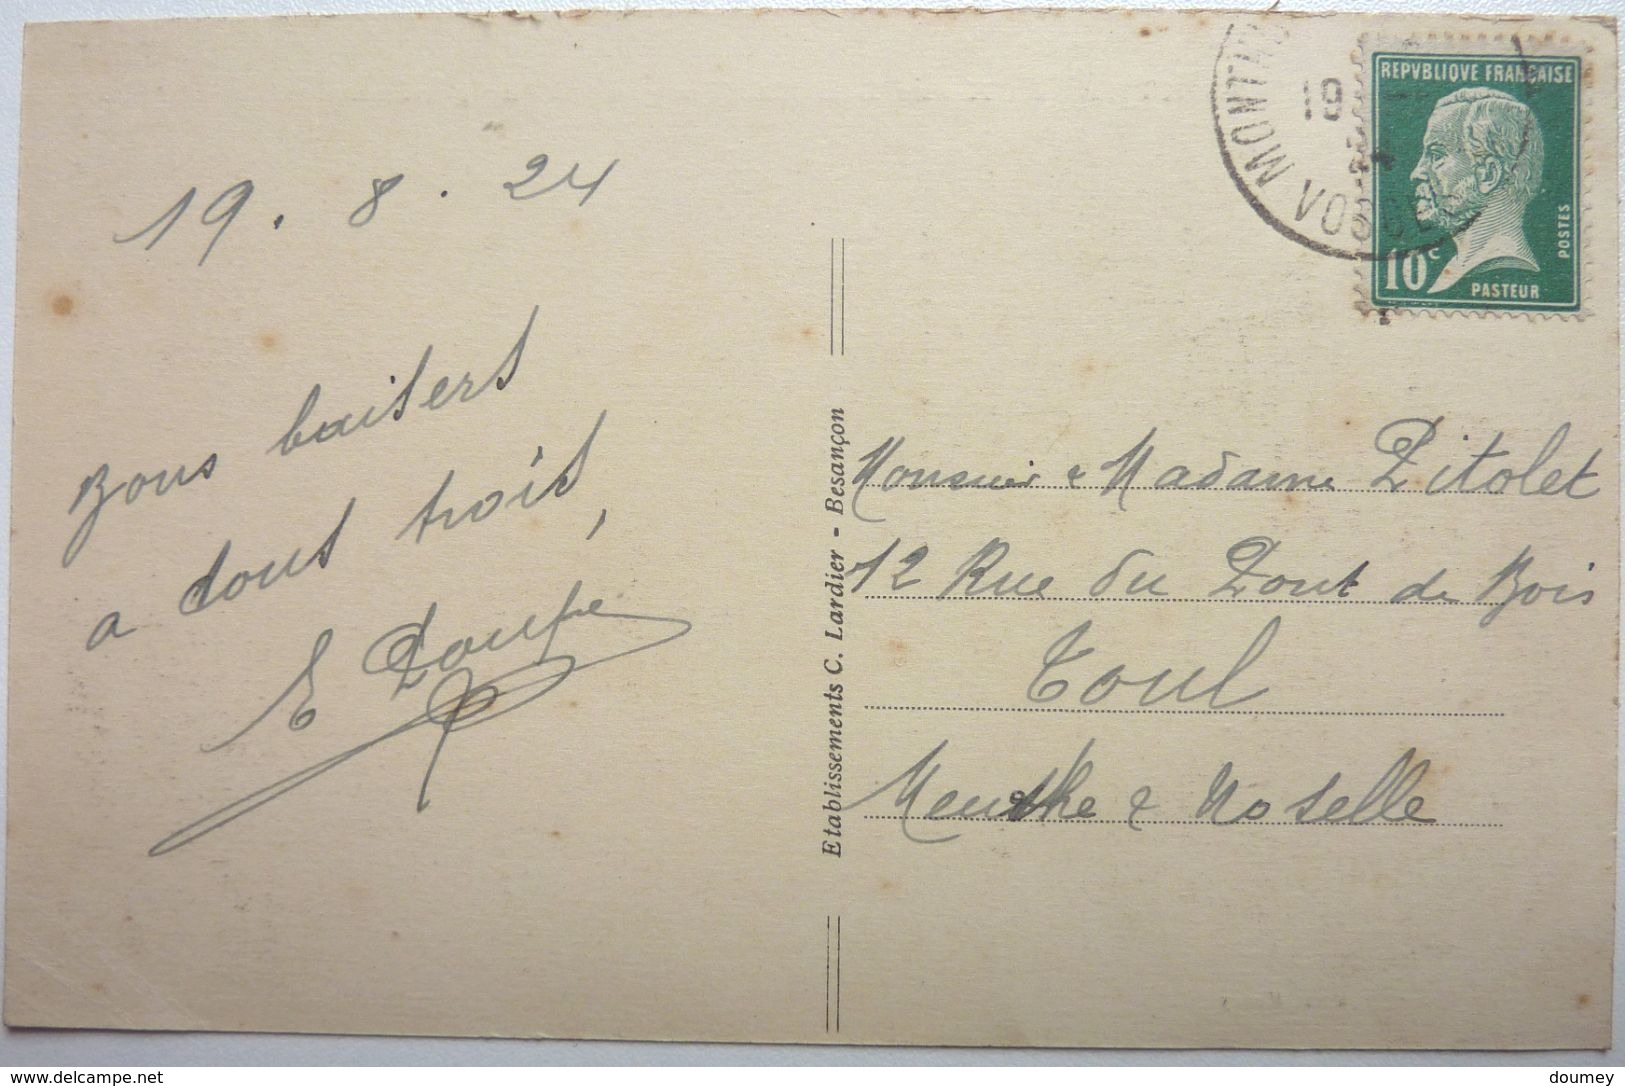 19.8.24
Bons baisers
a tous trois,
E
Etablissements C. Lardier - Besançon
MONT
19
24
VOSGES
REPVBLIQVE FRANÇAISE
POSTES
10c
PASTEUR
Monsieur & Madame Pitolet
12 Rue du Pont de Bois
Toul
Meurthe & Moselle
delcampe.net
doumey